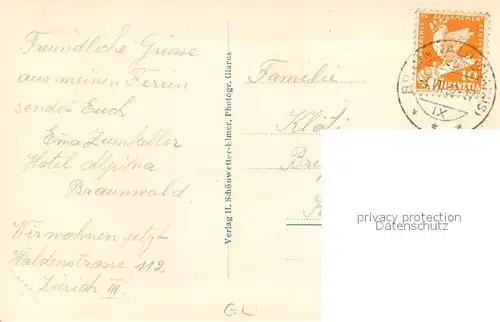 Freundliche Grüsse
aus meinen Ferien
sendet Euch
Emma Zumkeller
Hotel Alpina
Braunwald
Wir wohnen jetzt
Haldenstrasse 112
Zürich III
Verlag H. Schönwetter-Elmer, Photogr. Glarus
Familie
10
HELVETIA
IX
privacy protection
watermark
GL